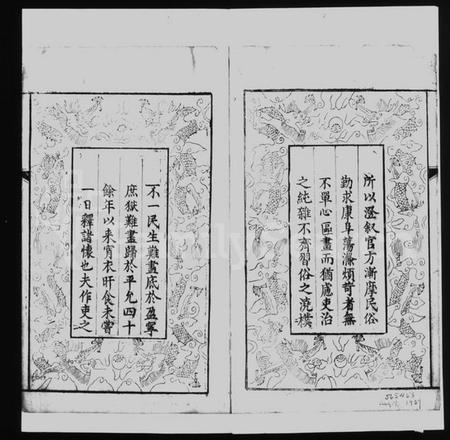 所以澄敘官方漸摩民俗
勤求康阜蕩滌煩苛者無
不單心區畫而猶慮吏治
之純雜不齊習俗之澆樸
不一民生難盡底於盈寧
庶獄難盡歸於平允四十
餘年以來宵衣旰食未嘗
一日釋諸懷也夫作吏之